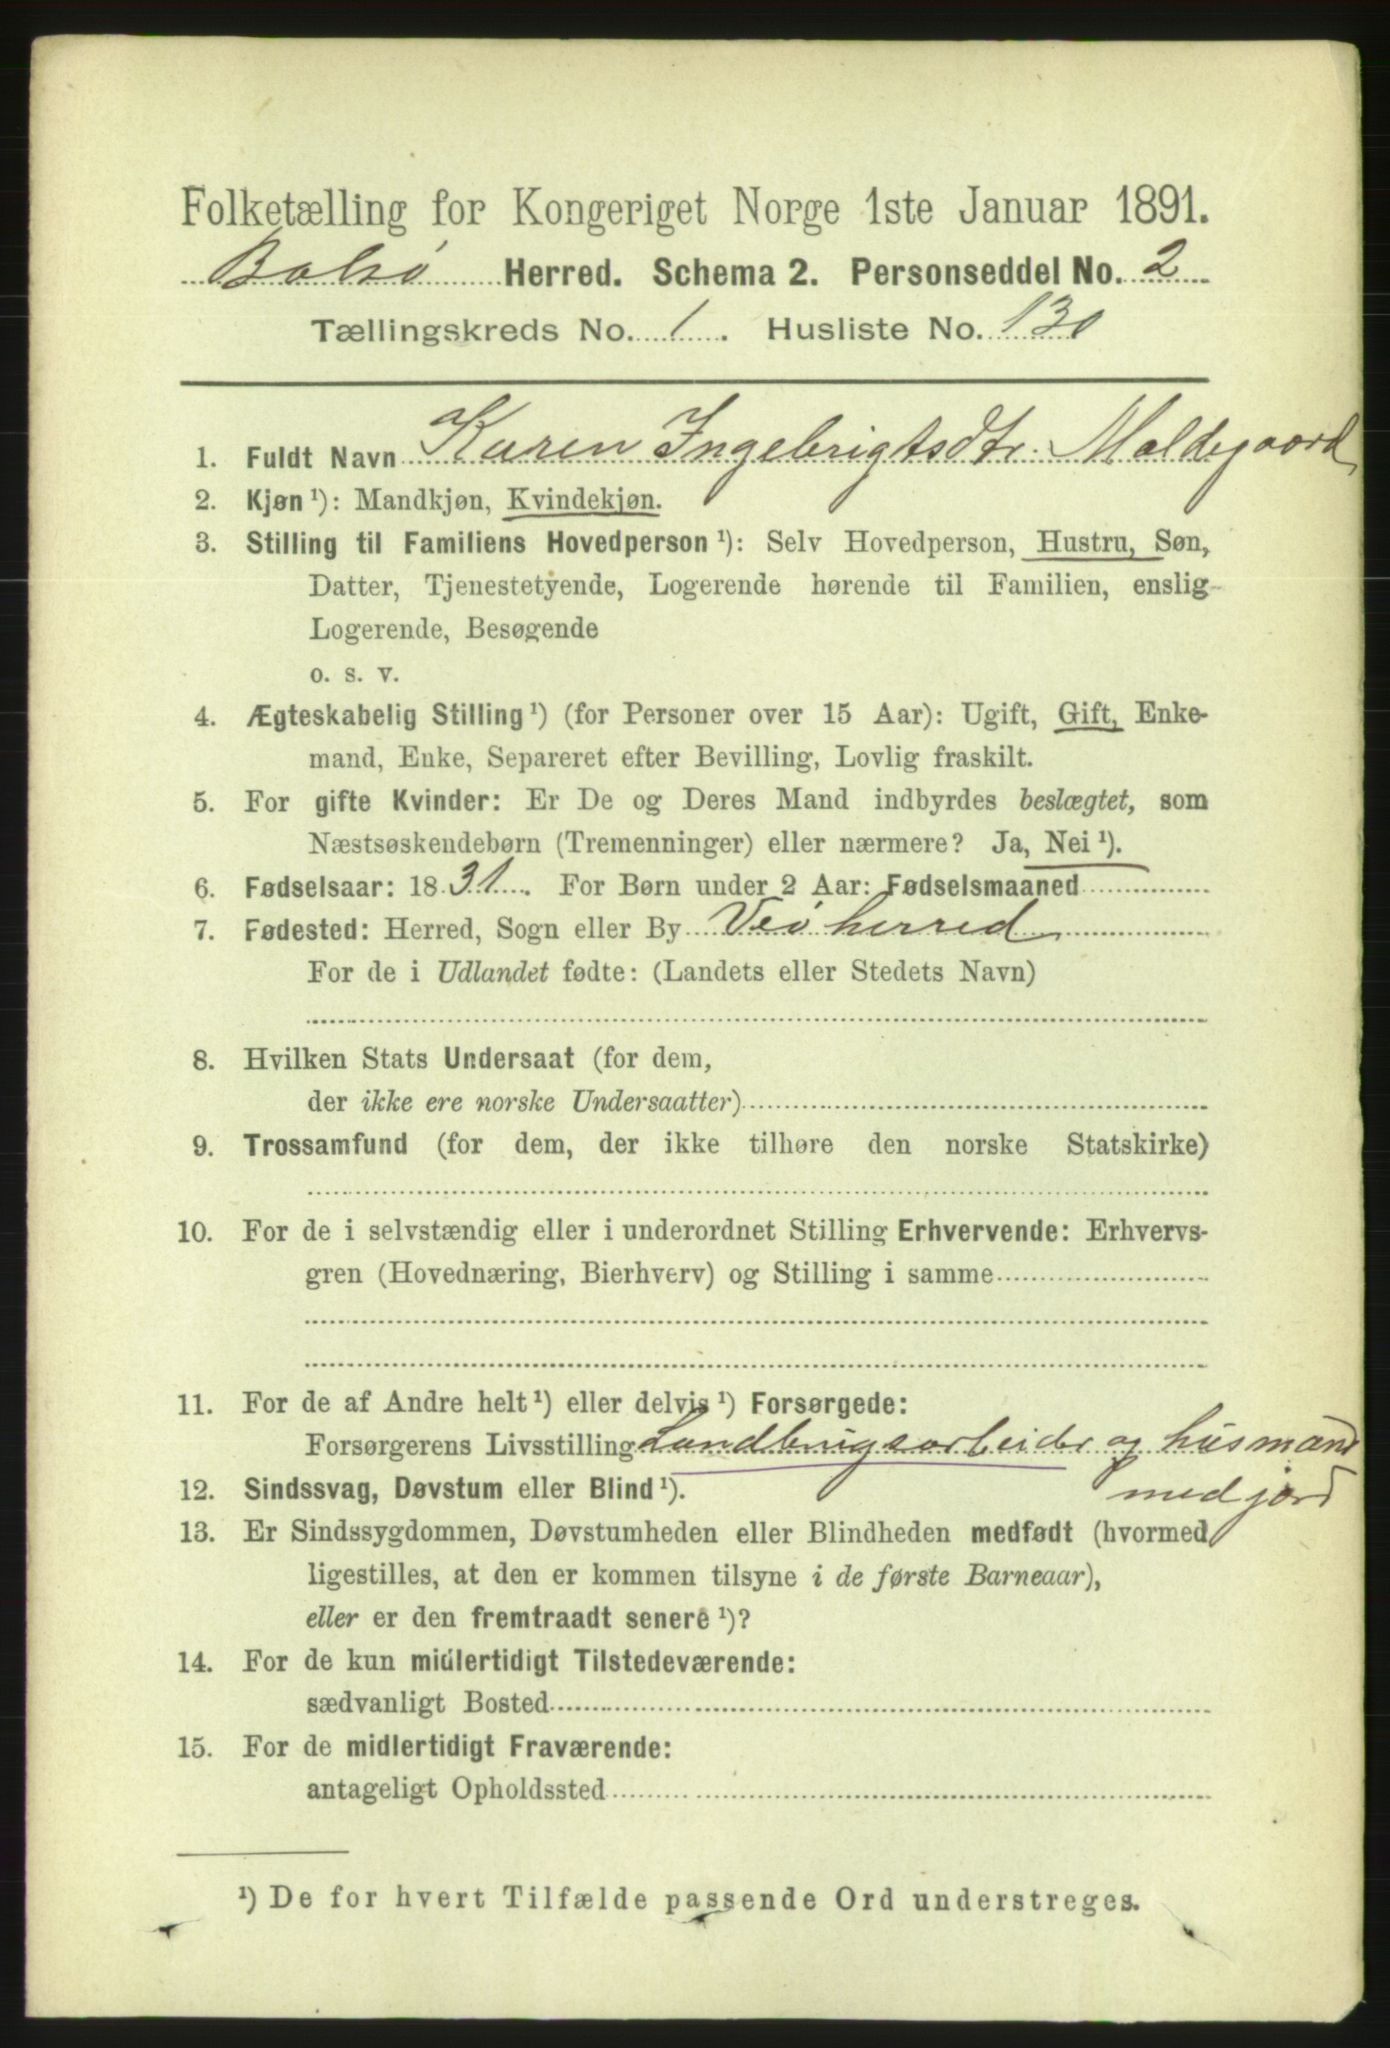 Folketælling for Kongeriget Norge 1ste Januar 1891.
Bolsø Herred. Schema 2. Personseddel No. 2
Tællingskreds No. 1. Husliste No. 130
1. Fuldt Navn Karen Ingebrigtsdtr. Moldegaard
2. Kjøn ¹): Mandkjøn, Kvindekjøn.
3. Stilling til Familiens Hovedperson ¹): Selv Hovedperson, Hustru, Søn,
Datter, Tjenestetyende, Logerende hørende til Familien, enslig
Logerende, Besøgende
o. s. v.
4. Ægteskabelig Stilling ¹) (for Personer over 15 Aar): Ugift, Gift, Enke-
mand, Enke, Separeret efter Bevilling, Lovlig fraskilt.
5. For gifte Kvinder: Er De og Deres Mand indbyrdes beslægtet, som
Næstsøskendebørn (Tremenninger) eller nærmere? Ja, Nei ¹).
6. Fødselsaar: 1831. For Børn under 2 Aar: Fødselsmaaned
7. Fødested: Herred, Sogn eller By Veø herred
For de i Udlandet fødte: (Landets eller Stedets Navn)
8. Hvilken Stats Undersaat (for dem,
der ikke ere norske Undersaatter)
9. Trossamfund (for dem, der ikke tilhøre den norske Statskirke)
10. For de i selvstændig eller i underordnet Stilling Erhvervende: Erhvervs-
gren (Hovednæring, Bierhverv) og Stilling i samme
11. For de af Andre helt ¹) eller delvis ¹) Forsørgede:
Forsørgerens Livsstilling Landbrugsarbeider og husmand
med jord
12. Sindssvag, Døvstum eller Blind ¹).
13. Er Sindssygdommen, Døvstumheden eller Blindheden medfødt (hvormed
ligestilles, at den er kommen tilsyne i de første Barneaar),
eller er den fremtraadt senere ¹)?
14. For de kun midlertidigt Tilstedeværende:
sædvanligt Bosted
15. For de midlertidigt Fraværende:
antageligt Opholdssted
¹) De for hvert Tilfælde passende Ord understreges.